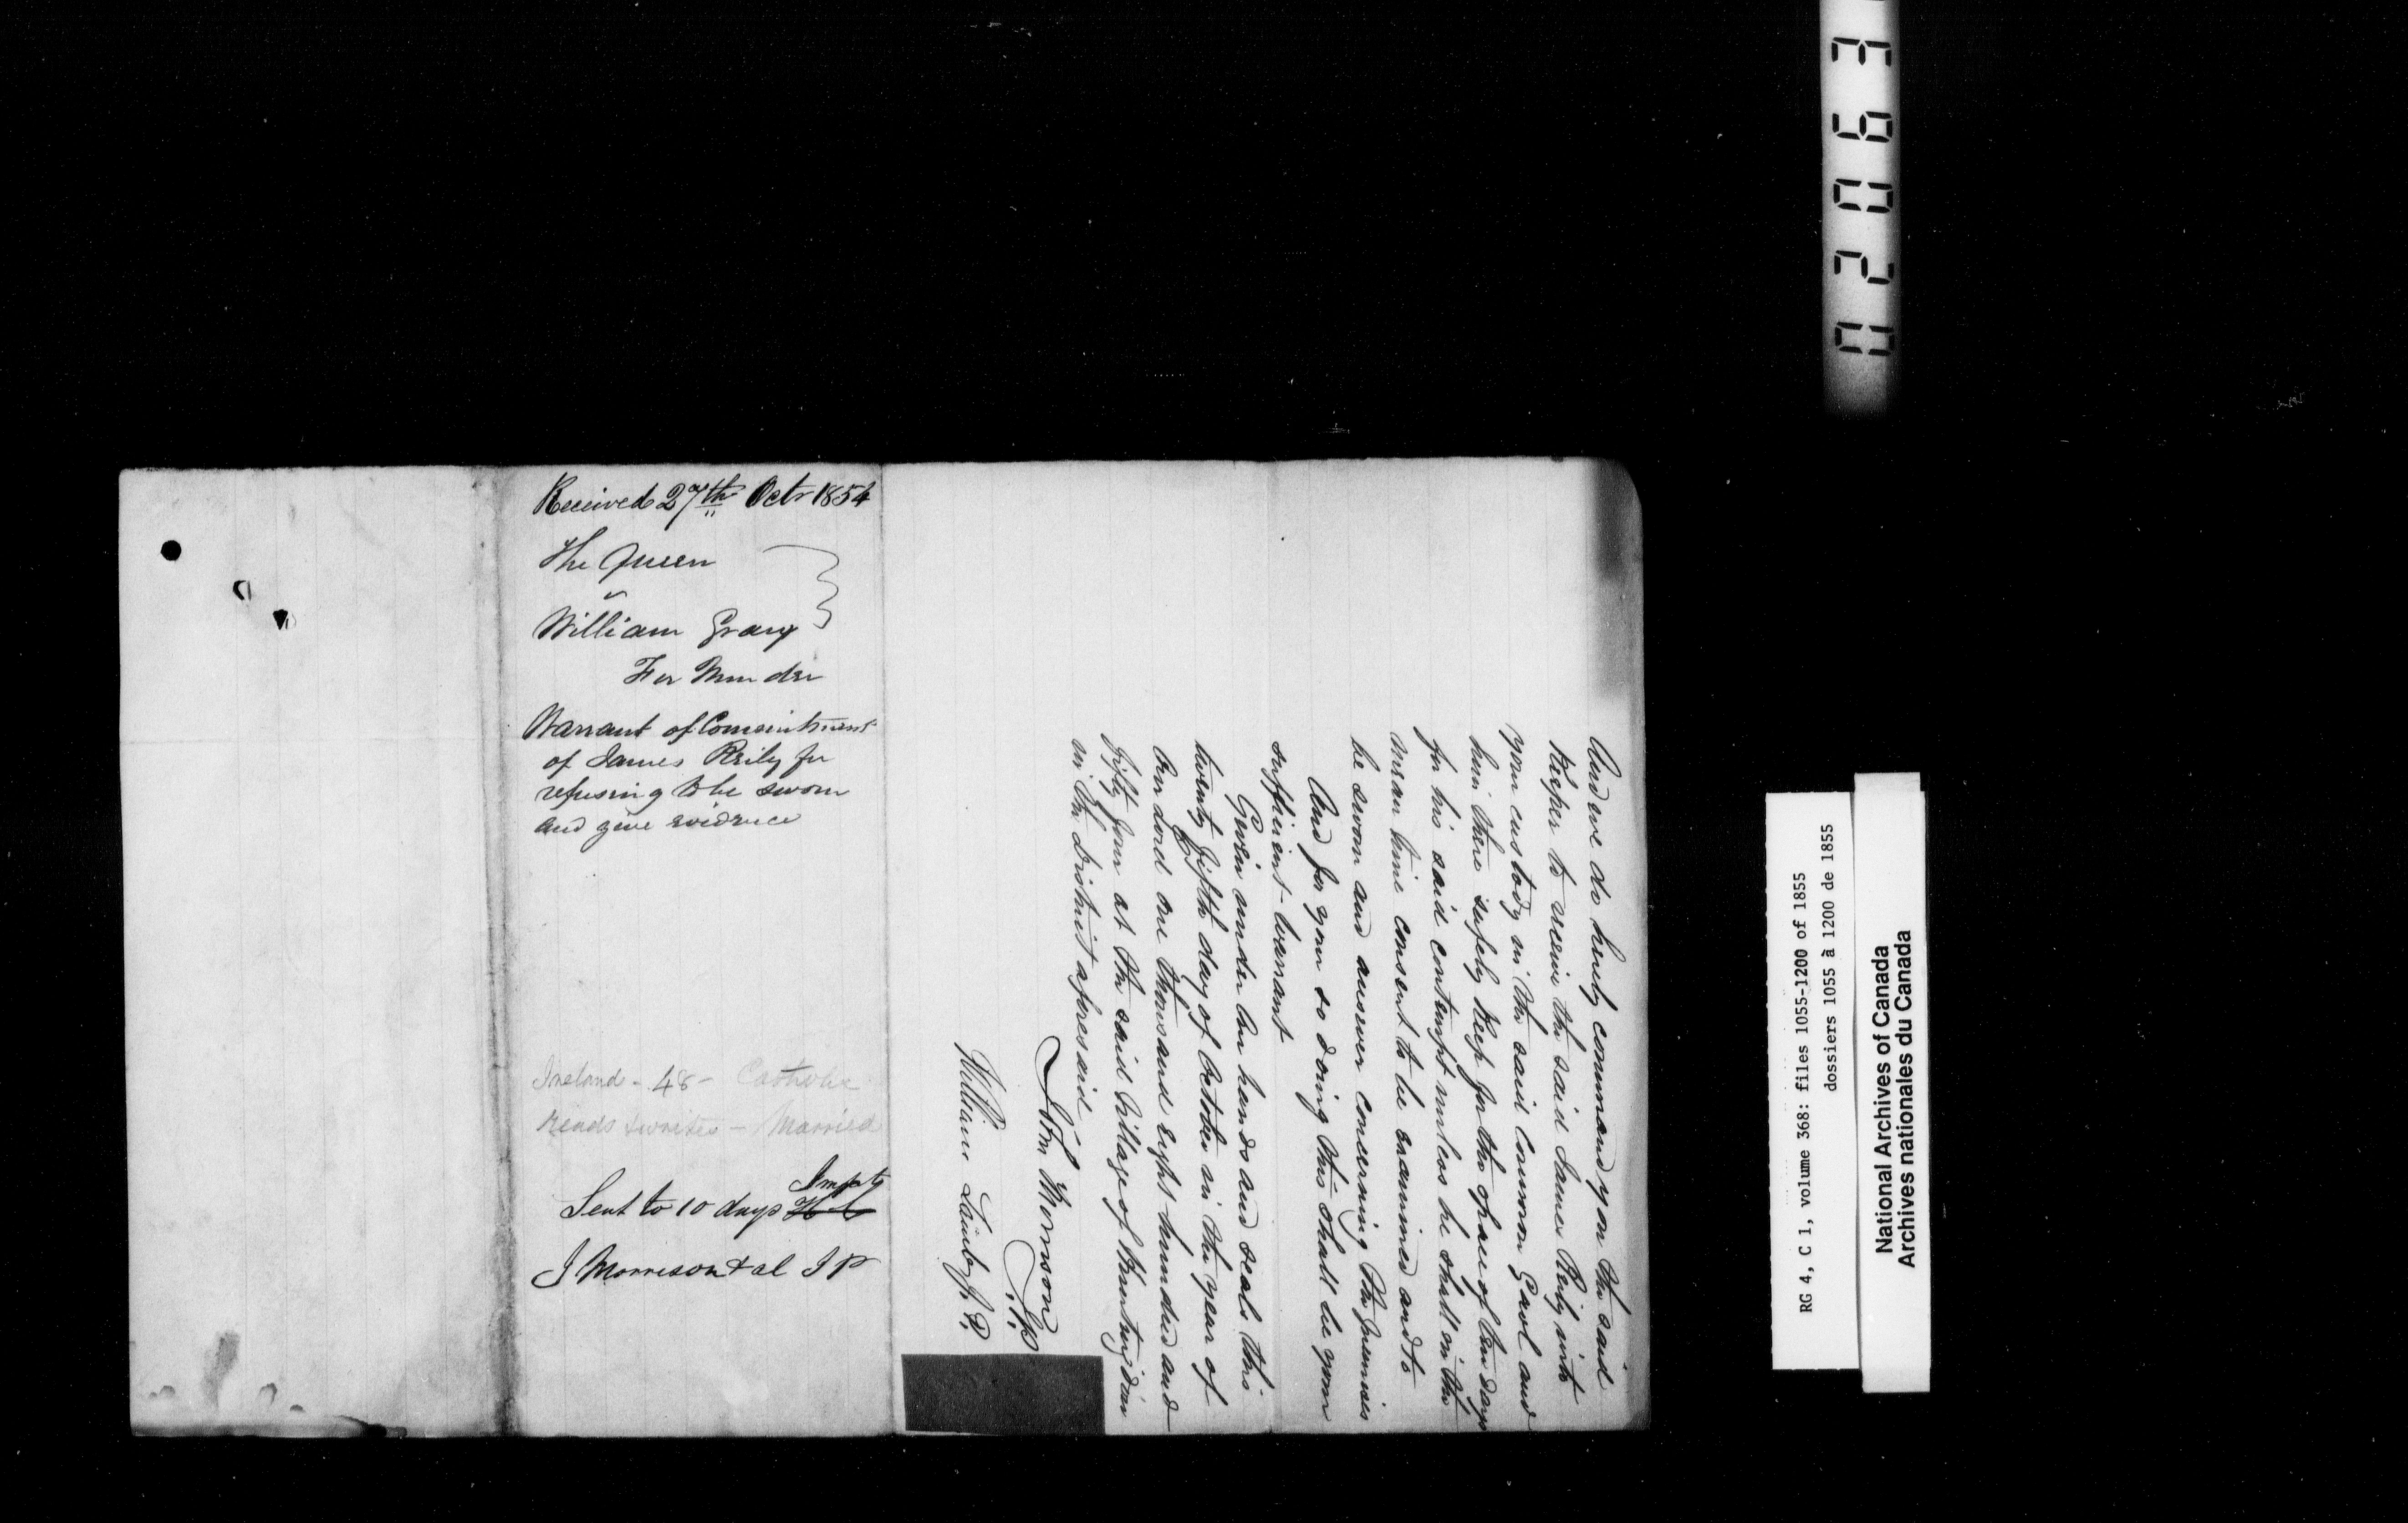 Received 27th Octr 1854
The Queen
v
William Gray
For Murder
Warrant of Commitment
of James Reily for
refusing to be sworn
and give evidence
Ireland - 48 - Catholic
Reads & writes - Married
Impt
Sent to 10 days H L
J Morrison & al J P
And we do hereby command you the said
Keeper to receive the said James Reily into
your custody in the said Common Gaol and
him there safely keep for the space of ten days
for his said contempt unless he shall in the
mean time consent to be examined and to
be sworn and answer concerning the premises
And for your so doing this shall be your
sufficient warrant
Given under our hands and seals this
twenty fifth day of October in the year of
Our Lord one thousand eight hundred and
fifty four at the said Village of Huntingdon
in the District aforesaid
John Morrison J.P.
William Lamb J.P.
02063
RG 4, C 1, volume 368: files 1055-1200 of 1855
dossiers 1055 à 1200 de 1855
National Archives of Canada
Archives nationales du Canada